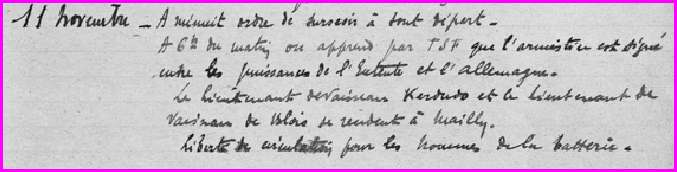 11 Novembre - A minuit ordre de surseoir à tout départ -
A 6h du matin on apprend par TSF que l'armistice est signé
entre les puissances de l'Entente et l'Allemagne.
Le lieutenant de Vaisseau Kerdudo et le lieutenant de
Vaisseau de Blois se rendent à Mailly.
Liberté de circulation pour les hommes de la batterie.